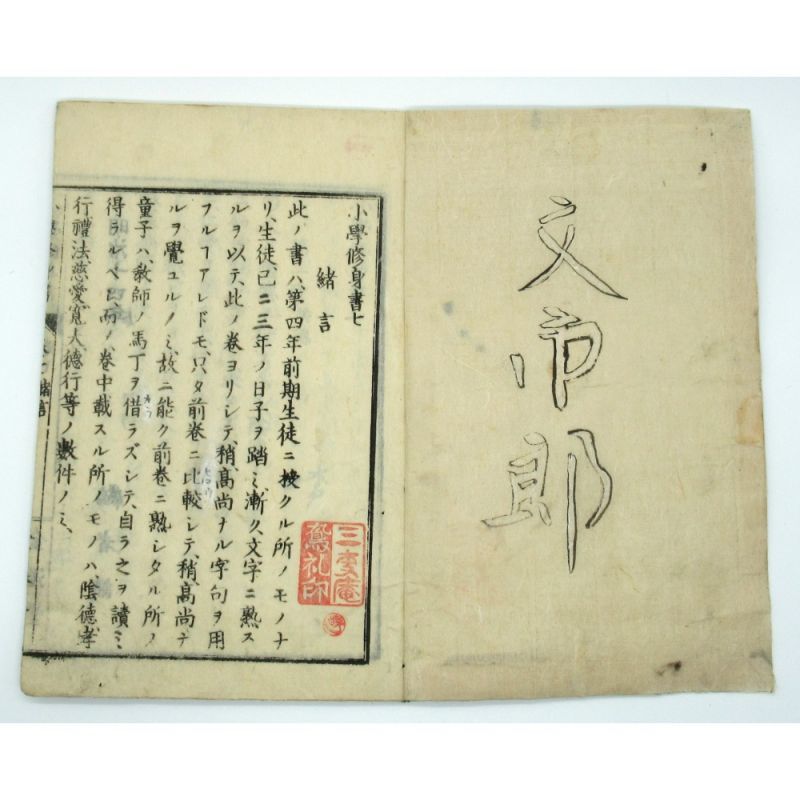 文市郎
小學修身書七
緒言
此ノ書ハ、第四年前期生徒ニ授クル所ノモノナ
リ、生徒、已ニ三年ノ日子ヲ踏ミ、漸ク、文字ニ熟ス
ルヲ以テ、此ノ卷ヨリシテ、稍、高尚ナル字句ヲ用
フルコアレドモ、只タ前卷ニ比較シテ、稍、高尚ナ
ルヲ覺ユルノミ、故ニ能ク前卷ニ熟シタル所ノ
童子ハ、教師ノ馬丁ヲ借ラズシテ、自ラ之ヲ讀ミ
得ラルベシ、而ノ、卷中載スル所ノモノハ、陰德、孝
行、禮法、慈愛、寬大、德行等ノ數件ノミ、
緒言